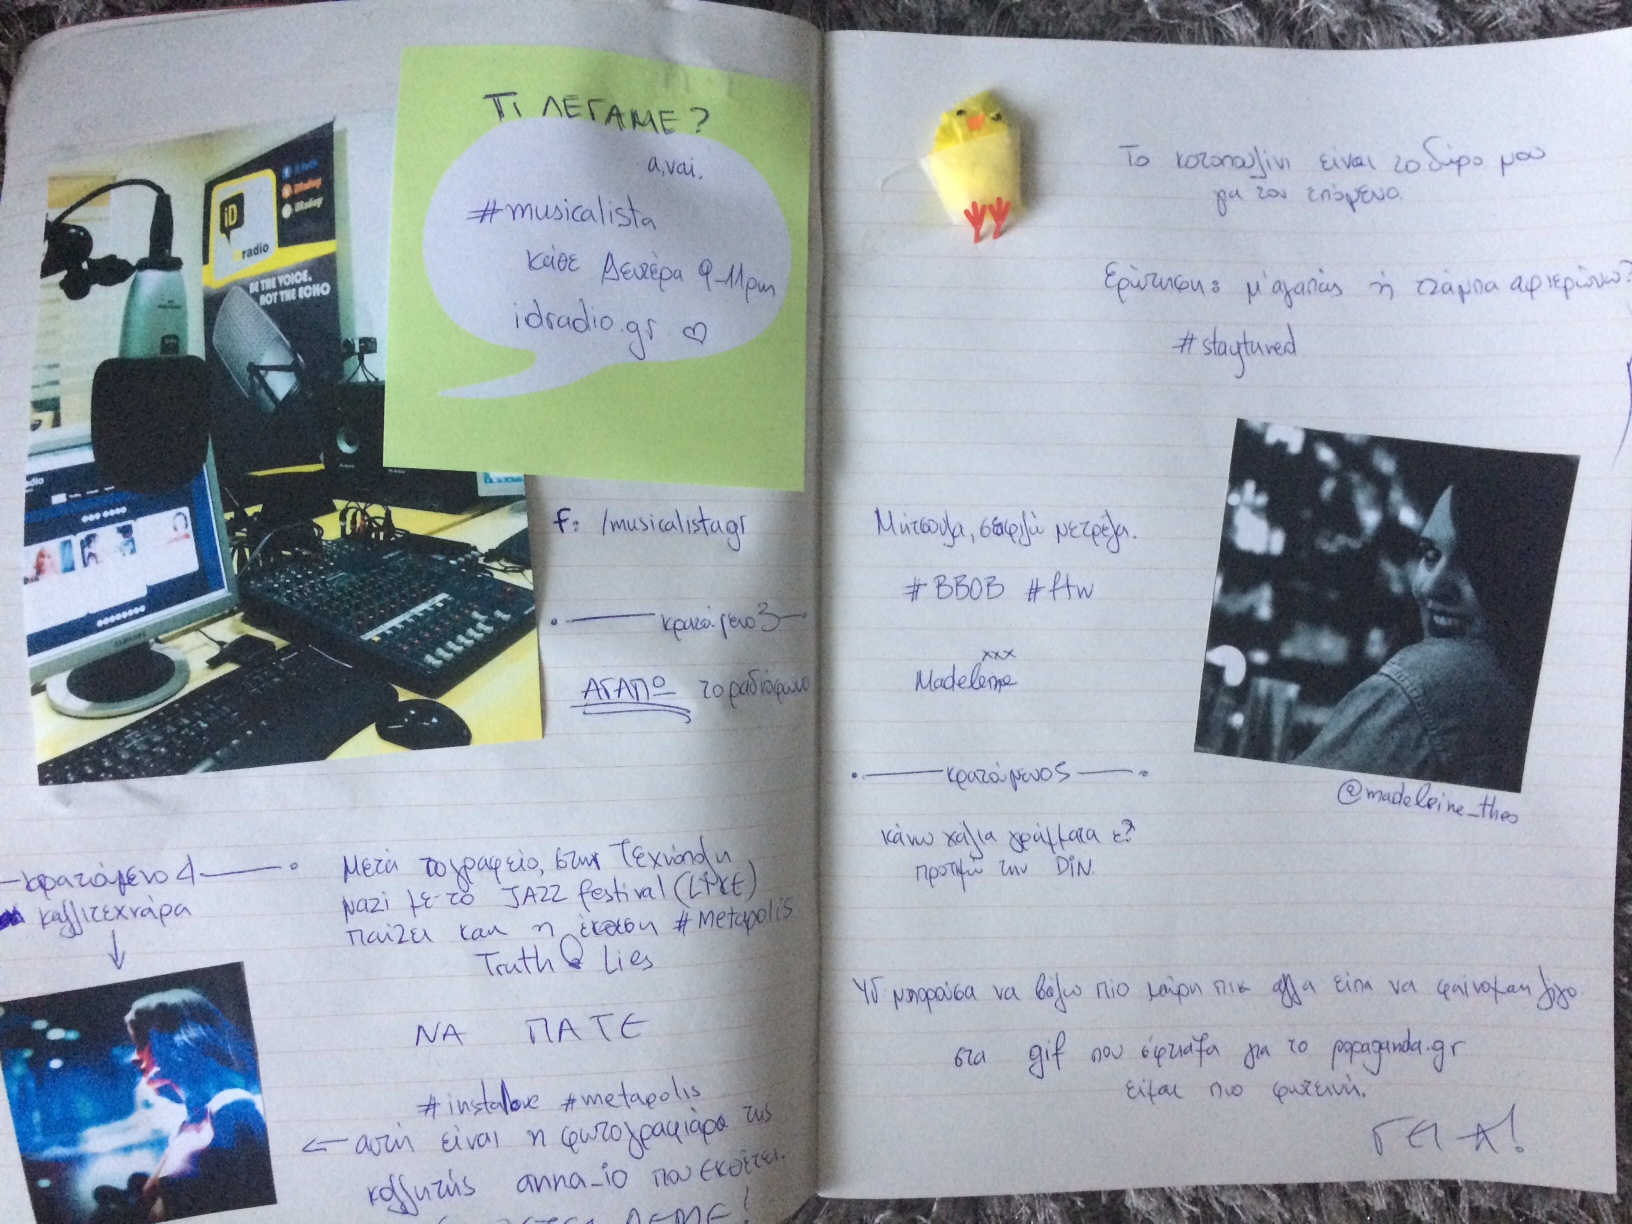 ΤΙ ΛΕΓΑΜΕ?
α, ναι.
#musicalista
κάθε Δευτέρα 9-11pm
idradio.gr ♡
iD
radio
BE THE VOICE,
NOT THE ECHO
f: /musicalistagr
κρατούμενο 3
ΑΓΑΠΩ το ραδιόφωνο
κρατούμενο 4
καλλιτεχνάρα
Μετά το γραφείο, στην Τεχνόπολη
μαζί με το JAZZ festival (LIKE)
παίζει και η έκθεση #Metapolis
Truth & Lies
ΝΑ ΠΑΤΕ
#instalove #metapolis
← αυτή είναι η φωτογραφιάρα της
κολλητής anna_io που εκθέτει.
ΛΕΜΕ!
Το κοτοπουλίνι είναι το δώρο μου
για τον επόμενο.
Ερώτηση: μ'αγαπάς ή τζάμπα αφιερώνω?
#staytuned
Μήτσουλα, σ'αφιλώ μετρέλα.
#BBOB #ftw
xxx
Madeleine
@madeleine_theo
κρατούμενο 5
κάνω χάλια γράμματα ε?
προτιμώ την DIN.
ΥΓ μπορούσα να βάλω πιο μαύρη πικ αλλά είπα να φαίνομαι λίγο.
στα gif που έφτιαξα για το popaganda.gr
είμαι πιο φωτεινή.
ΓΕΙΑ!